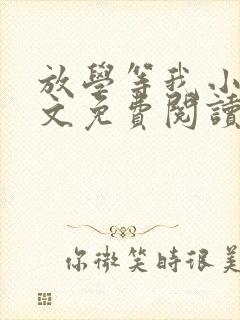 放學等我小
文免費閱讀
你微笑時很美